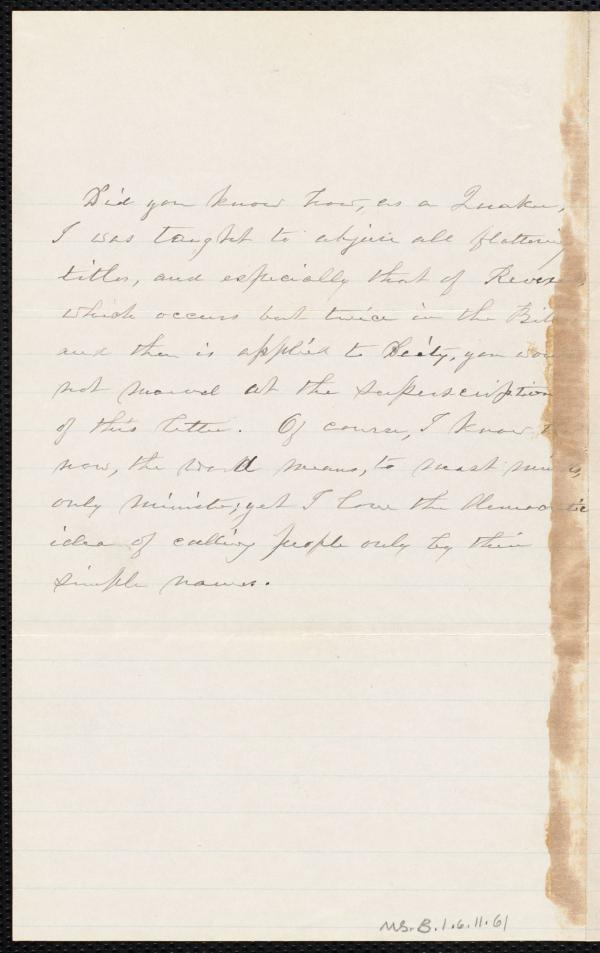 Did you know how, as a Quaker,
I was taught to abjure all flattering
titles, and especially that of Rever
which occurs but twice in the Bib
and then is applied to Deity, you wou
not marvel at the superscription
of this letter. Of course, I know t
now, the word means, to most minds,
only minister; yet I love the democratic
idea of calling people only by their
simple names.
MS.B.1.6.11.61